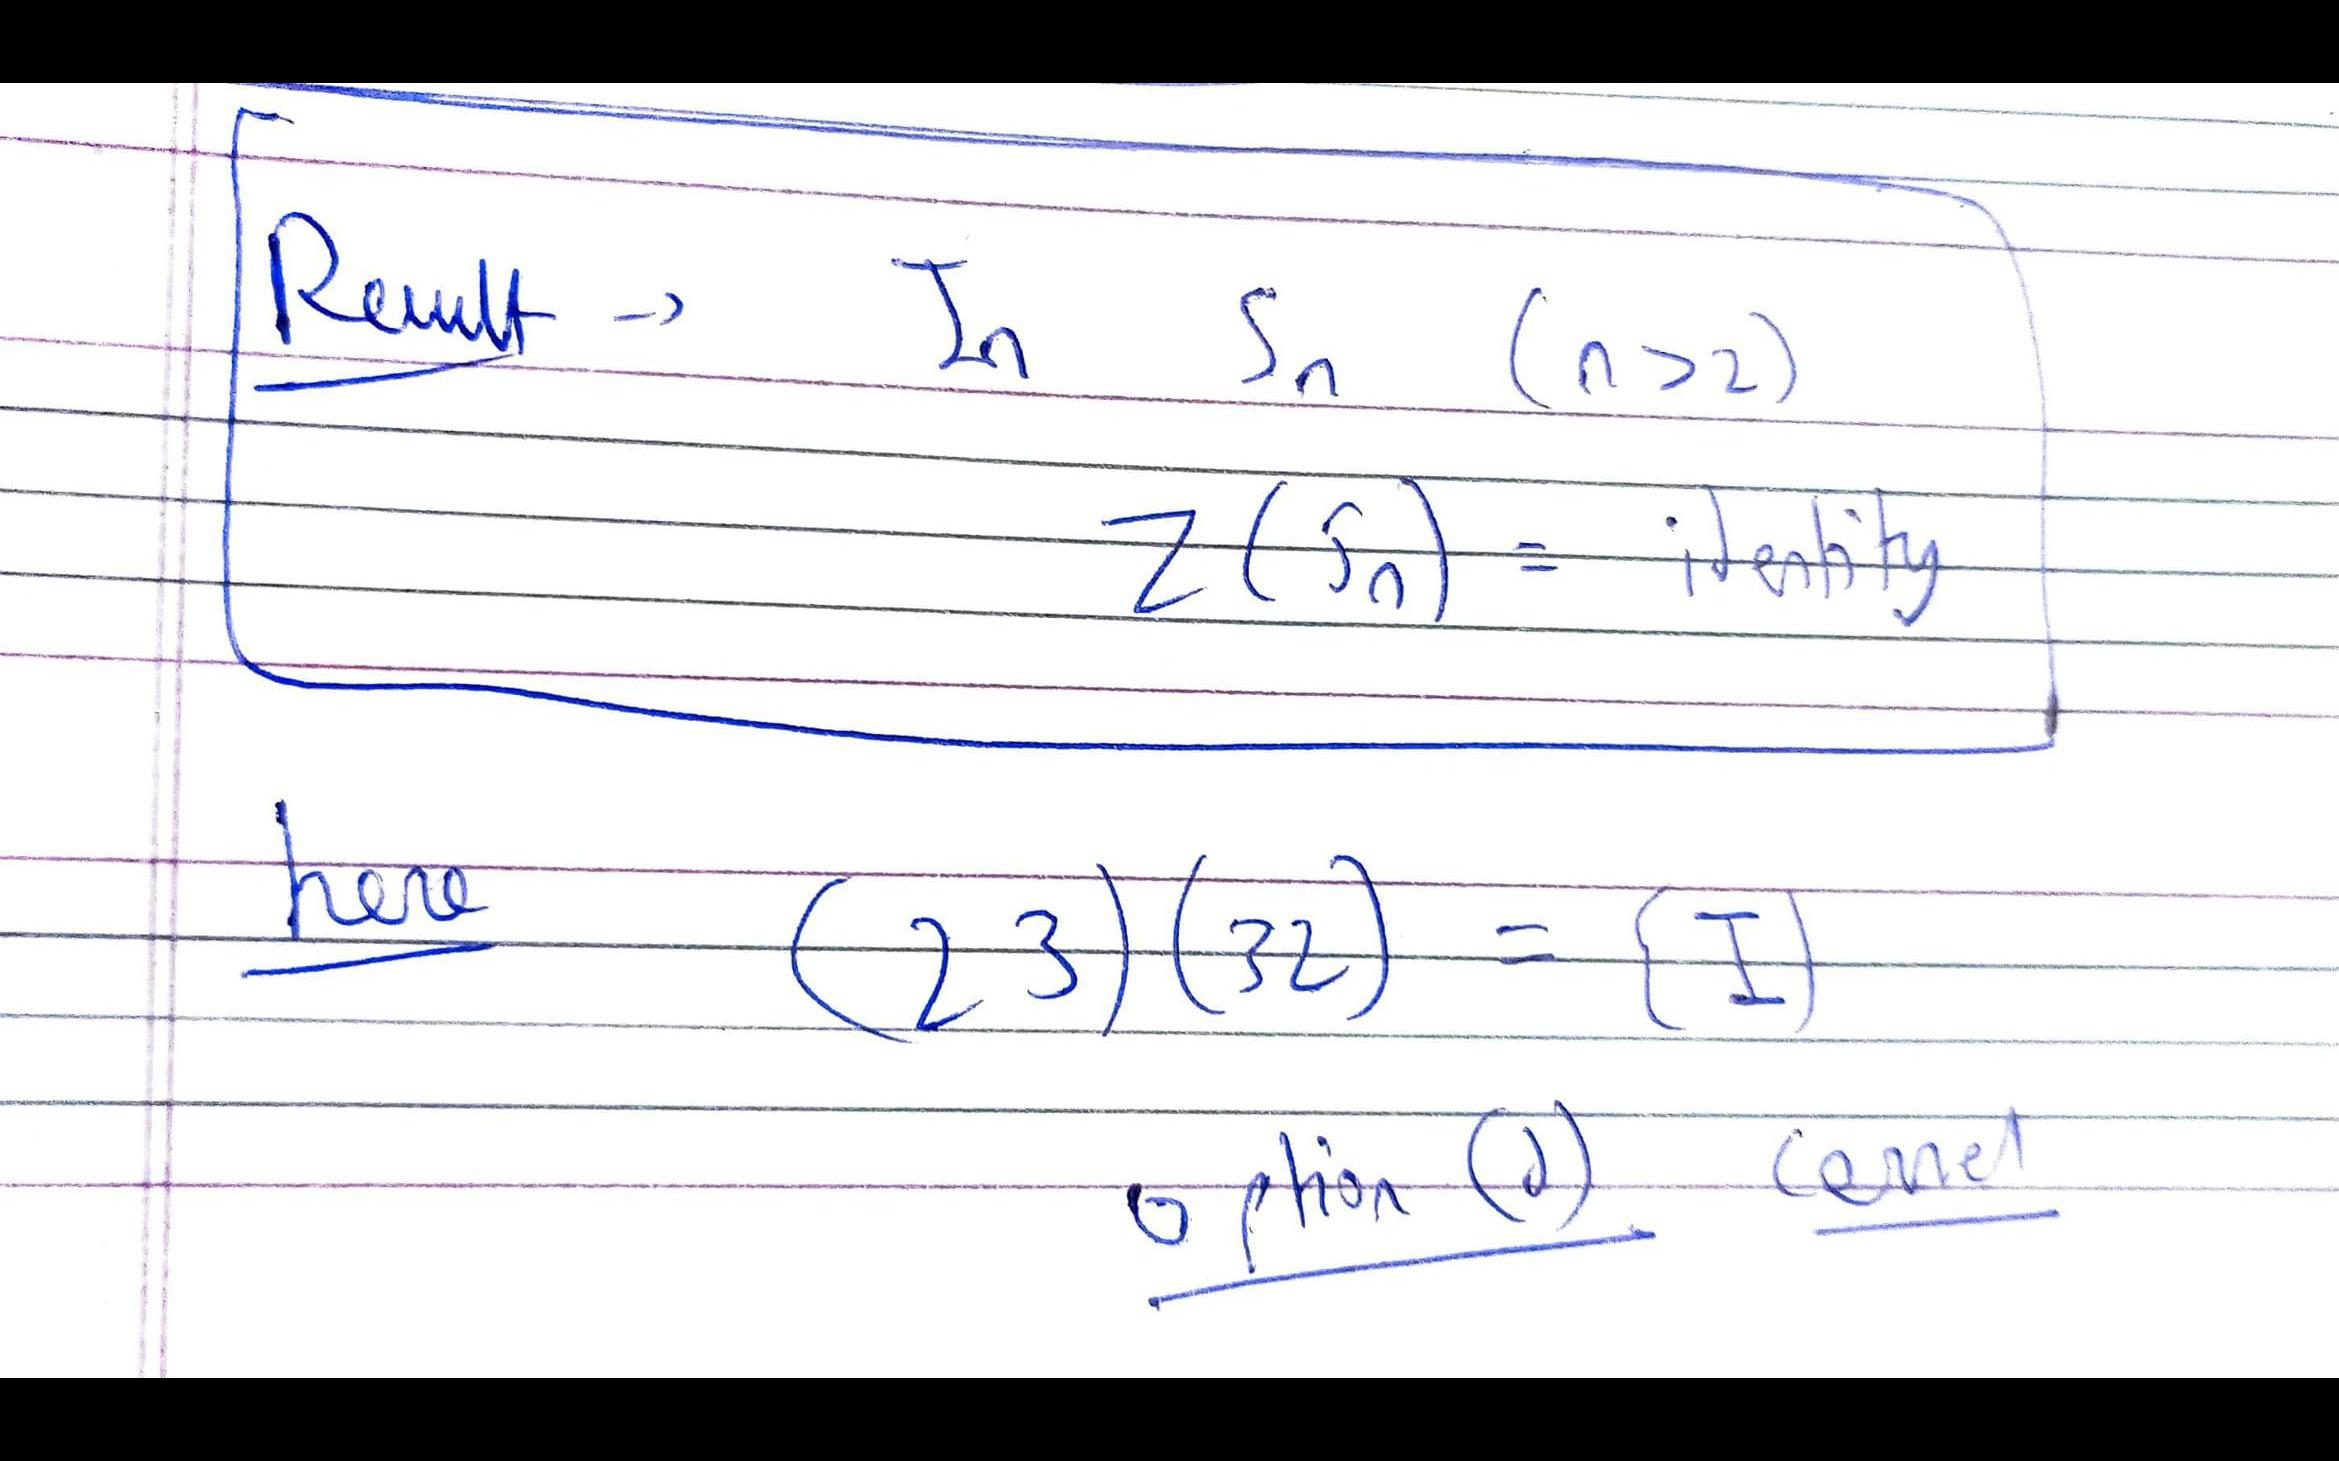 Result → In Sn (n>2)
Z(Sn) = identity
here (2 3)(32) = {I}
option (d) correct